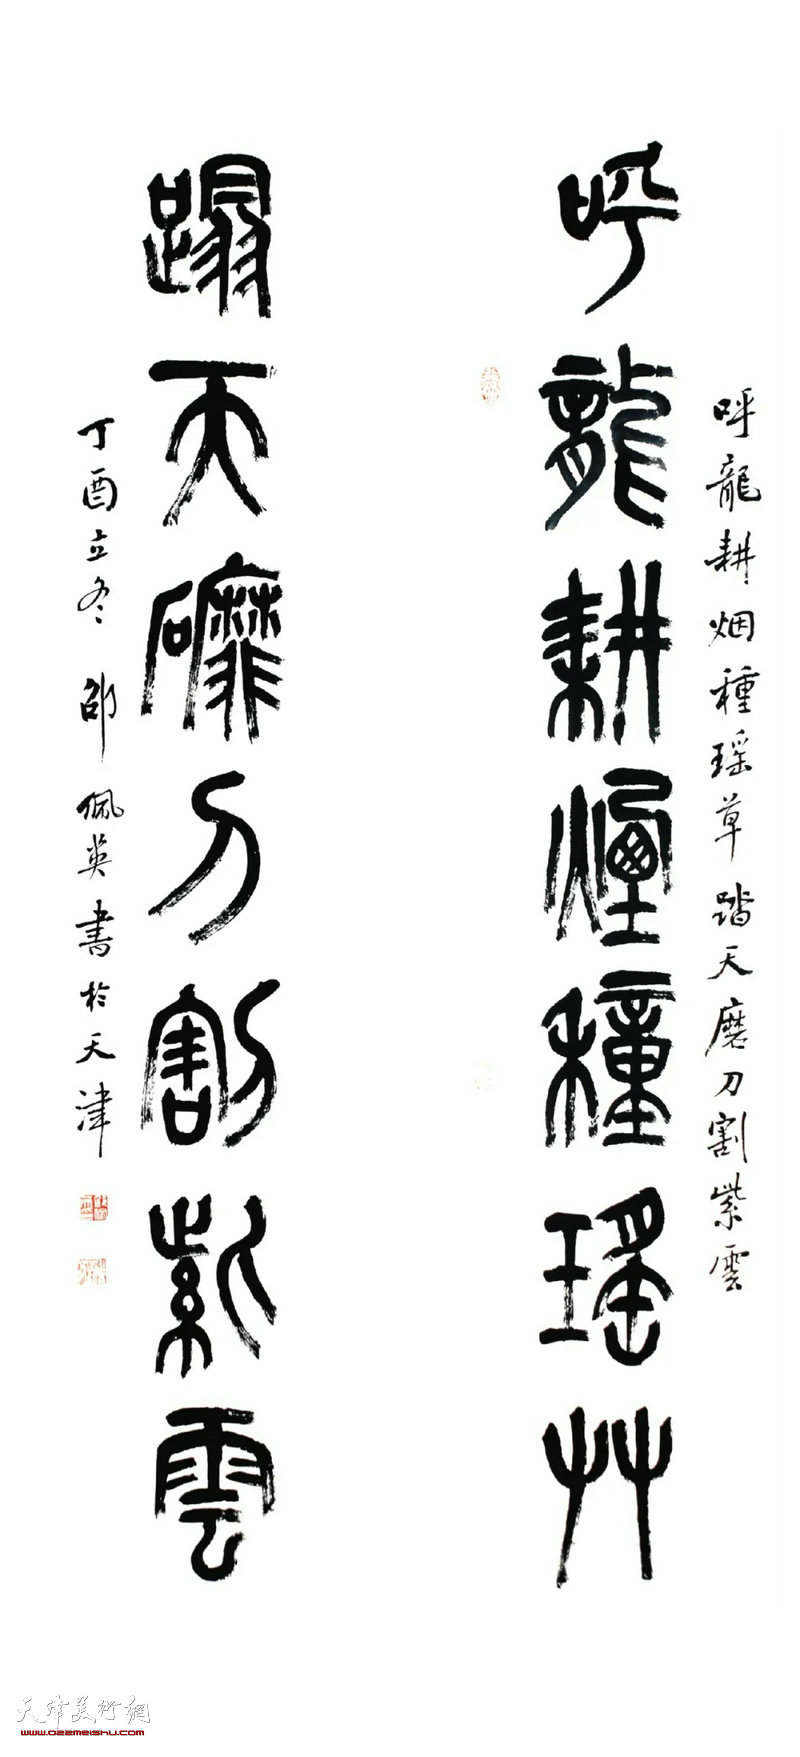 呼龍耕烟種瑶草踏天磨刀割紫雲
呼龍耕煙種瑤艸
蹋天䃺刀割紫雲
丁酉立冬 邵佩英書於天津
天津美術網
www.022meishu.com